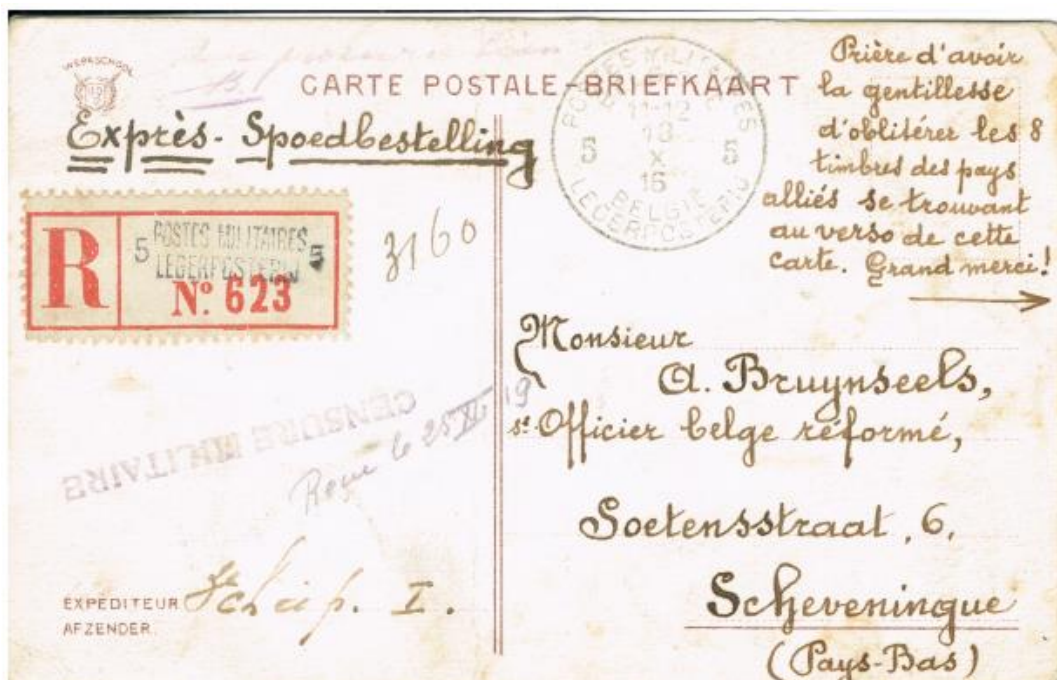 WERKSCHOOL
CARTE POSTALE-BRIEFKAART
Exprès - Spoedbestelling
POSTES MILITAIRES
11-12
18
X
16
5 5
BELGIE
LEGERPOSTERIJ
Prière d'avoir
la gentillesse
d'oblitérer les 8
timbres des pays
alliés se trouvant
au verso de cette
carte. Grand merci!
R
5 POSTES MILITAIRES 5
LEGERPOSTERIJ
Nº 623
3160
CENSURE MILITAIRE
Reçue le 25 XII 19
Monsieur
A. Bruynseels,
st-Officier belge réformé,
Soetensstraat, 6,
Scheveningue
(Pays-Bas)
EXPÉDITEUR
AFZENDER
I.